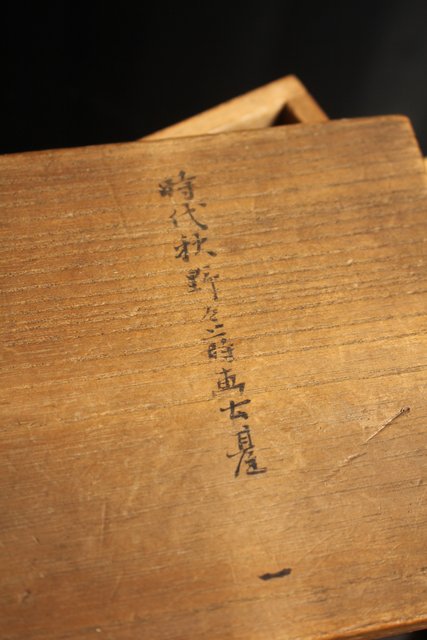 時代秋野之蒔画臺
一